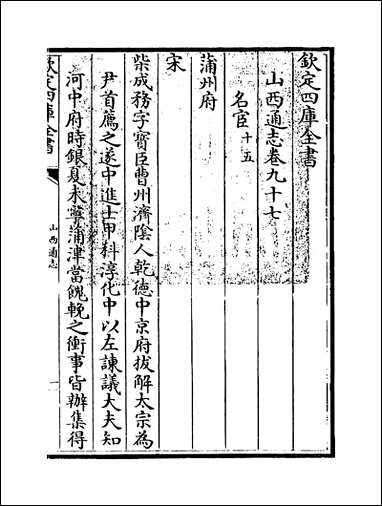 欽定四庫全書
山西通志卷九十七
名宦十五
蒲州府
宋
柴成務字寳臣曹州濟陰人乾德中京府拔解太宗為
尹首薦之遂中進士甲科淳化中以左諫議大夫知
河中府時銀夏未寧蒲津當餽輓之衝事皆辦集得
欽定四庫全書
山西通志
一